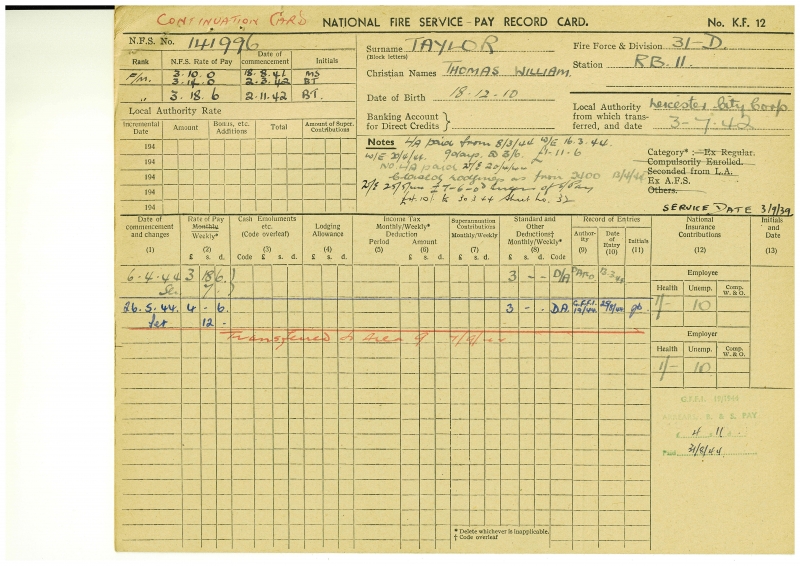 CONTINUATION CARD
NATIONAL FIRE SERVICE-PAY RECORD CARD.
No. K.F. 12
N.F.S. No. 141996
Rank
N.F.S. Rate of Pay
Date of commencement
Initials
F/M. 3.10.0 18.8.41 MS
3.14.0 2.3.42 BT
" 3.18.6 2.11.42 BT.
Surname TAYLOR
(Block letters)
Christian Names THOMAS WILLIAM.
Date of Birth 18-12-10
Banking Account
for Direct Credits
Fire Force & Division 31-D.
Station RB.11.
Local Authority
from which trans-
ferred, and date
Leicester City Corp
3-7-42
Local Authority Rate
Incremental Date
Amount
Bonus, etc. Additions
Total
Amount of Super. Contributions
194
194
194
194
194
Notes L/A paid from 8/3/44 W/E 16.3.44.
W/E 20/4/44. 9 days @ 3/6. £1-11-6
No L/A paid
from
Sheet No. 32
Category*:— Ex Regular.
Compulsorily Enrolled.
Seconded from L.A.
Ex A.F.S.
Others.
SERVICE DATE 3/9/39.
Date of commencement and changes
(1)
Rate of Pay
Monthly
Weekly*
(2)
£ s. d.
Cash Emoluments etc.
(Code overleaf)
(3)
Code £ s. d.
Lodging Allowance
(4)
£ s. d.
Income Tax
Monthly/Weekly*
Deduction
(5)
Period
Amount
(6)
£ s. d.
Superannuation Contributions
Monthly/Weekly
(7)
£ s. d.
Standard and Other Deductions†
Monthly/Weekly*
(8)
£ s. d. Code
Record of Entries
Authority
(9)
Date of Entry
(10)
Initials
(11)
National Insurance Contributions
(12)
Initials and Date
(13)
6-4-44 3 18 6. 3 - - D/A
7.
26.5.44. 4 - 6. 3 - - D.A. G.F.F.I. 12/44. gb
12 -
Transferred to Area 9
Employee
Health Unemp. Comp. W. & O.
1/- 10
Employer
Health Unemp. Comp. W. & O.
1/- 10
G.F.F.I. 12/1944
R. & S. PAY
£ 4 . 11 .
31/8/44
* Delete whichever is inapplicable.
† Code overleaf